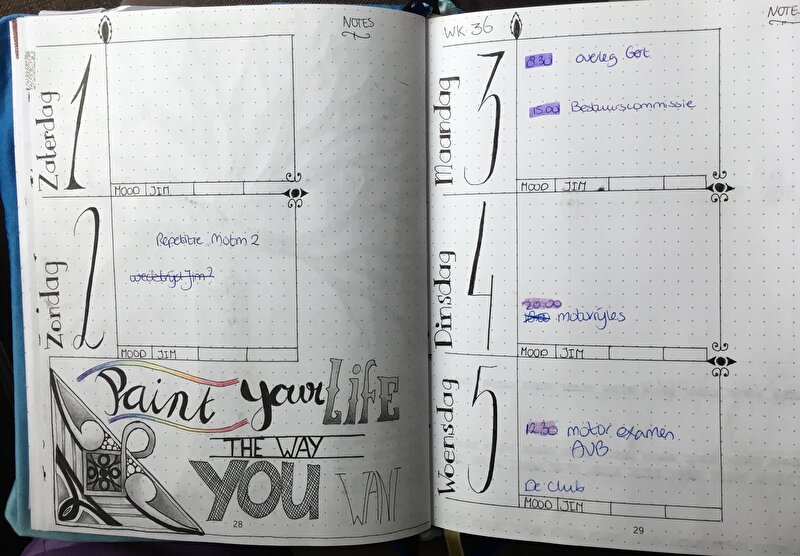 NOTES
Zaterdag
1
MOOD JIM
Zondag
2
Repetitie Motm 2
wedstrijd Jim 2
MOOD JIM
Paint Your LIFE
THE WAY
YOU WANT
28
WK. 36
NOTES
Maandag
3
8.30 overleg Gert
15.00 Bestuurscommissie
MOOD JIM
Dinsdag
4
20.00
motorrijles
MOOD JIM
Woensdag
5
12.30 motor examen
AVB
De Club
MOOD JIM
29